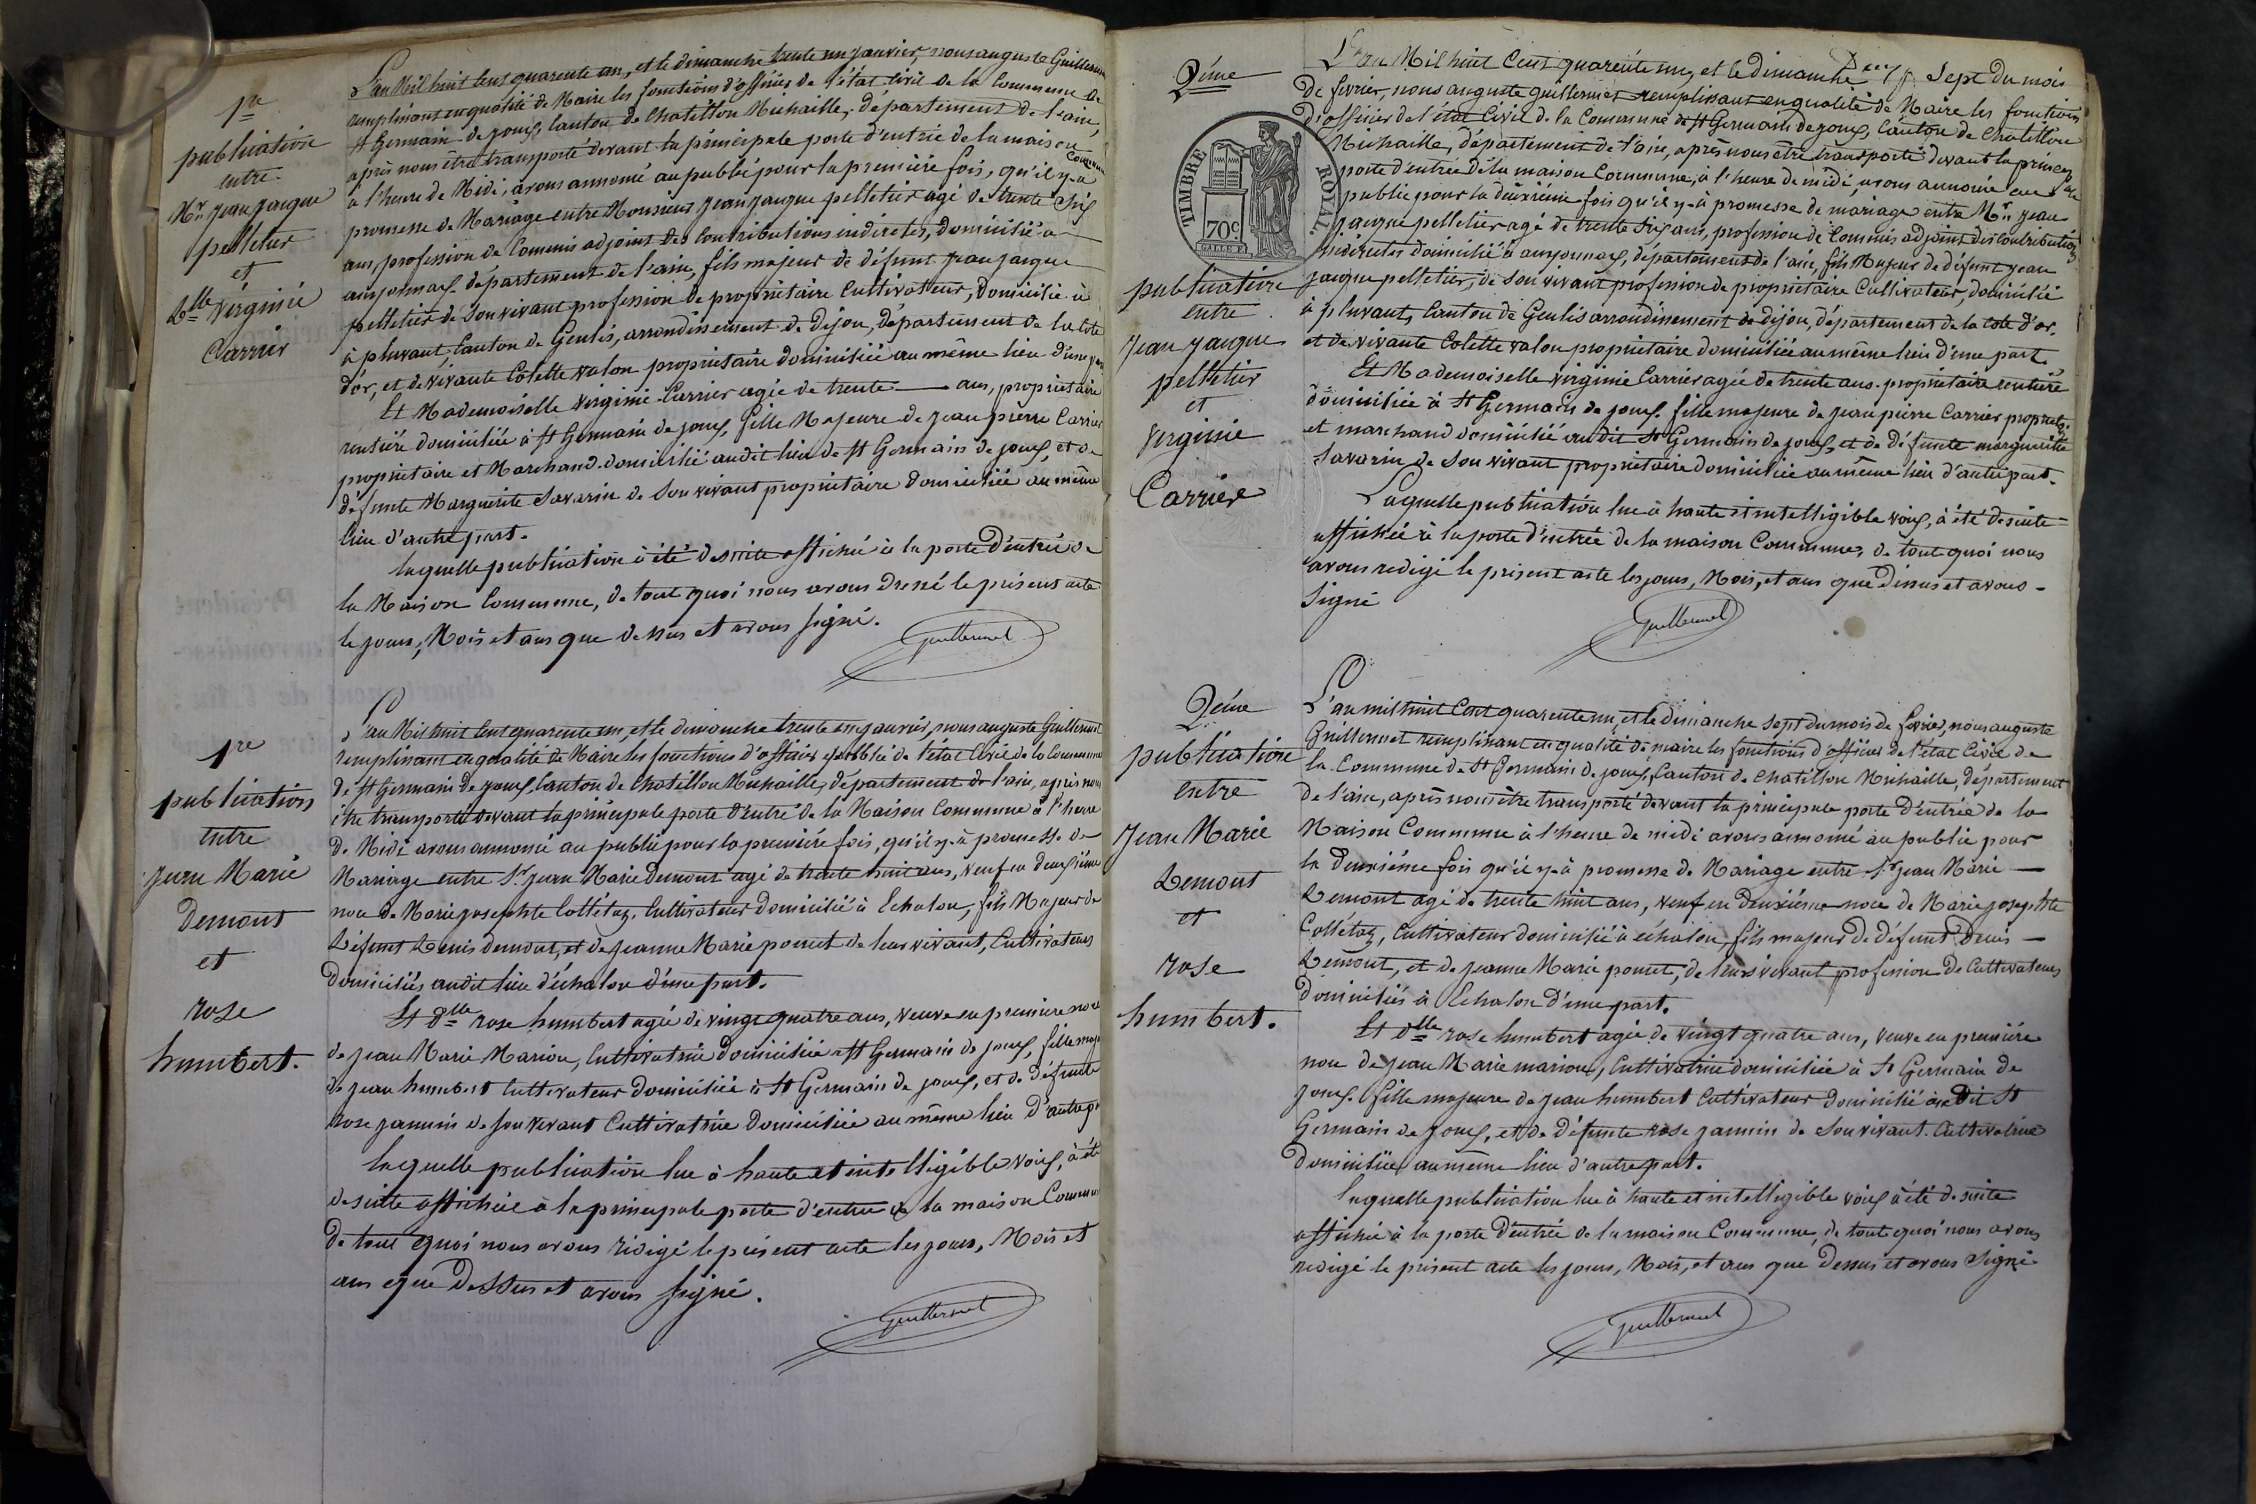 1re
publication
entre
Mr. jean jacque
pelletier
et
Dlle virginie
Carrier
L'an Mil huit Cent quarente un, et le dimanche trente un janvier, nous auguste Guillermet
remplissant en qualité de Maire les fonctions d'officier de l'état Civil de la Commune de
St Germain de joux, Canton de Chatillon Michaille, département de l'ain,
après nous être transporté devant la principale porte d'entrée de la maison Commune
à l'heure de Midi, avons annoncé au public pour la première fois, qu'il y a
promesse de Mariage entre Monsieur jean jacque pelletier agé de trente Six
ans, profession de Commis adjoint des Contributions indirectes, domicilié a
département de l'ain, fils majeur de défunt jean jacque
pelletier de Son vivant profession de propriétaire Cultivateur, domicilié à
à pluvant, Canton de Genlis, arrondissement de Dijon, département de la Cote
d'or, et de vivante Colette valon propriétaire domiciliée au même lieu d'une part
Et Mademoiselle virginie Carrier agée de trente ans, propriétaire
rentière domiciliée à St Germain de joux, fille Majeure de jean pierre Carrier
propriétaire et Marchand domicilié audit lieu de St Germain de joux, et de
défunte Marguerite Savarin de Son vivant propriétaire domiciliée au même
lieu d'autre part.
laquelle publication à été desuite affichée à la porte d'entrée de
la Maison Commune, de tout quoi nous avons dressé le présent acte
le jours, Mois et ans que dessus et avons signé.
Guillermet
1re
publication
entre
jean Marie
Demont
et
rose
humbert.
L'an Mil huit Cent quarente un, et le dimanche trente un janvier, nous auguste Guillermet
remplissant en qualité de Maire les fonctions d'officier de l'état Civil de la Commune
de St Germain de joux, Canton de Chatillon Michaille, département de l'ain, après nous
être transporté devant la principale porte d'entré de la Maison Commune à l'heure
de Midi avons annoncé au public pour la première fois, qu'il y a promesse de
Mariage entre Sr jean Marie Demont agé de trente huit ans, veuf en deuxième
noce de Marie josephte Collétaz, Cultivateur domicilié à Echalon, fils Majeur de
Défunt Denis demont, et de jeanne Marie poncet de leur vivant, Cultivateurs
domiciliés audit lieu d'échalon d'une part.
Et dlle rose humbert agée de vingt quatre ans, veuve en première noce
de jean Marie Marion, Cultivatrice domiciliée à St Germain de joux, fille maje
de jean humbert Cultivateur domicilié à St Germain de joux, et de défunte
rose janmin de Son vivant Cultivatrice domiciliée au même lieu d'autre pa
laquelle publication lue à haute et intelligible voix, à été
desuite affichée à la principale porte d'entrée de la maison Commune
de tout quoi nous avons rédigé le présent acte les jours, Mois et
ans que Dessus et avons signé.
Guillermet
2éme
publication
entre
jean jacque
pelletier
et
virginie
Carrier
TIMBRE ROYAL.
70c
L'an Mil huit Cent quarente un, et le dimanche Sept du mois
de fevrier, nous auguste guillermet remplissant en qualité de Maire les fonctions
d'officier de l'état Civil de la Commune de St Germain de joux, Canton de Chatillon
Michaille, département de l'ain, après nous être transporté devant la principale
porte d'entrée de la maison Commune, à l'heure de midi, avons annoncé au
public pour la deuxième fois qu'il y a promesse de mariage entre Mr. jean
jacque pelletier agé de trente Six ans, profession de Commis adjoint des Contributions
indirectes domicilié à département de l'ain, fils Majeur de défunt jean
jacque pelletier, de Son vivant profession de propriétaire Cultivateur, domicilié
à pluvant, Canton de Genlis arrondissement de Dijon, département de la Cote d'or,
et de vivante Colette valon propriétaire domiciliée au même lieu d'une part.
Et Mademoiselle virginie Carrier agée de trente ans. propriétaire rentière
domiciliée à St Germain de joux. fille majeure de jean pierre Carrier propriete
et marchand domicilié audit St Germain de joux, et de défunte marguerite
Savarin de Son vivant propriétaire domiciliée au même lieu d'autre part.
Laquelle publication lue à haute et intelligible voix, à été desuite
affichée à la porte d'entrée de la maison Commune, de tout quoi nous
avons redigé le présent acte les jours, Mois, et ans que Dessus et avons
Signé
Guillermet
2éme
publication
entre
jean Marie
Demont
et
rose
humbert.
L'an mil huit Cent quarente un, et le dimanche Sept du mois de fevrier, nous auguste
Guillermet remplissant en qualité de maire les fonctions d'officier de l'état Civil de
la Commune de St Germain de joux, Canton de Chatillon Michaille, département
de l'ain, après nous être transporté devant la principale porte d'entrée de la
Maison Commune à l'heure de midi avons annoncé au public pour
la deuxième fois qu'il y a promesse de Mariage entre Sr jean Marie
Demont agé de trente huit ans, veuf en deuxième noce de Marie josephte
Collétaz, Cultivateur domicilié à échalon, fils majeur de défunt Denis
Demont, et de jeanne Marie poncet, de leurs vivant profession de Cultivateurs
domiciliés à Echalon d'une part.
Et dlle rose humbert agée de vingt quatre ans, veuve en première
noce de jean Marie marion, Cultivatrice domiciliée à St Germain de
joux. fille majeure de jean humbert Cultivateur domicilié audit St
Germain de joux, et de défunte rose janmin de Son vivant. Cultivatrice
domiciliée au même lieu d'autre part.
laquelle publication lue à haute et intelligible voix à été desuite
affichée à la porte d'entrée de la maison Commune, de tout quoi nous avons
redigé le présent acte les jours, Mois, et ans que Dessus et avons Signé
Guillermet